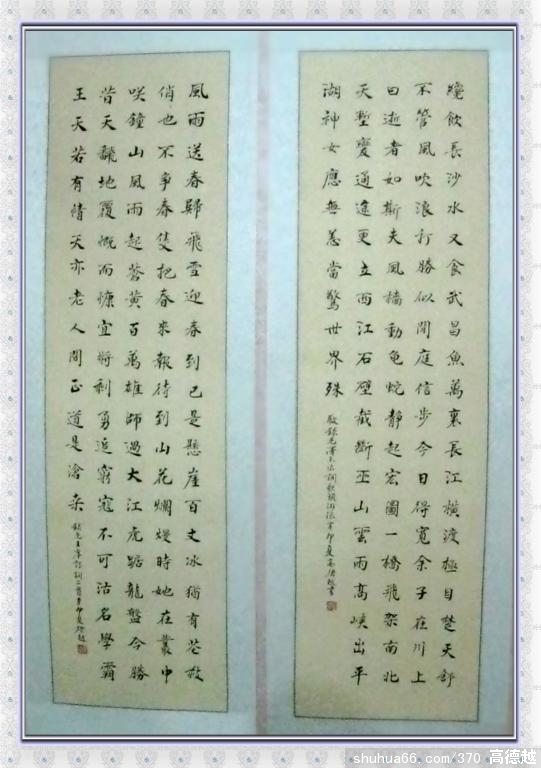 纔飲長沙水又食武昌魚萬裏長江橫渡極目楚天舒
不管風吹浪打勝似閒庭信步今日得寬余子在川上
曰逝者如斯夫風檣動龜蛇靜起宏圖一橋飛架南北
天塹變通途更立西江石壁截斷巫山雲雨高峽出平
湖神女應無恙當驚世界殊
風雨送春歸飛雪迎春到已是懸崖百丈冰猶有花枝
俏也不爭春隻把春來報待到山花爛熳時她在叢中
咲鐘山風雨起蒼黃百萬雄師過大江虎踞龍盤今勝
昔天翻地覆慨而慷宜將剩勇追窮寇不可沽名學霸
王天若有情天亦老人間正道是滄桑
錄毛主席詩詞二首辛卯夏德越
shuhua66.com/370 高德越